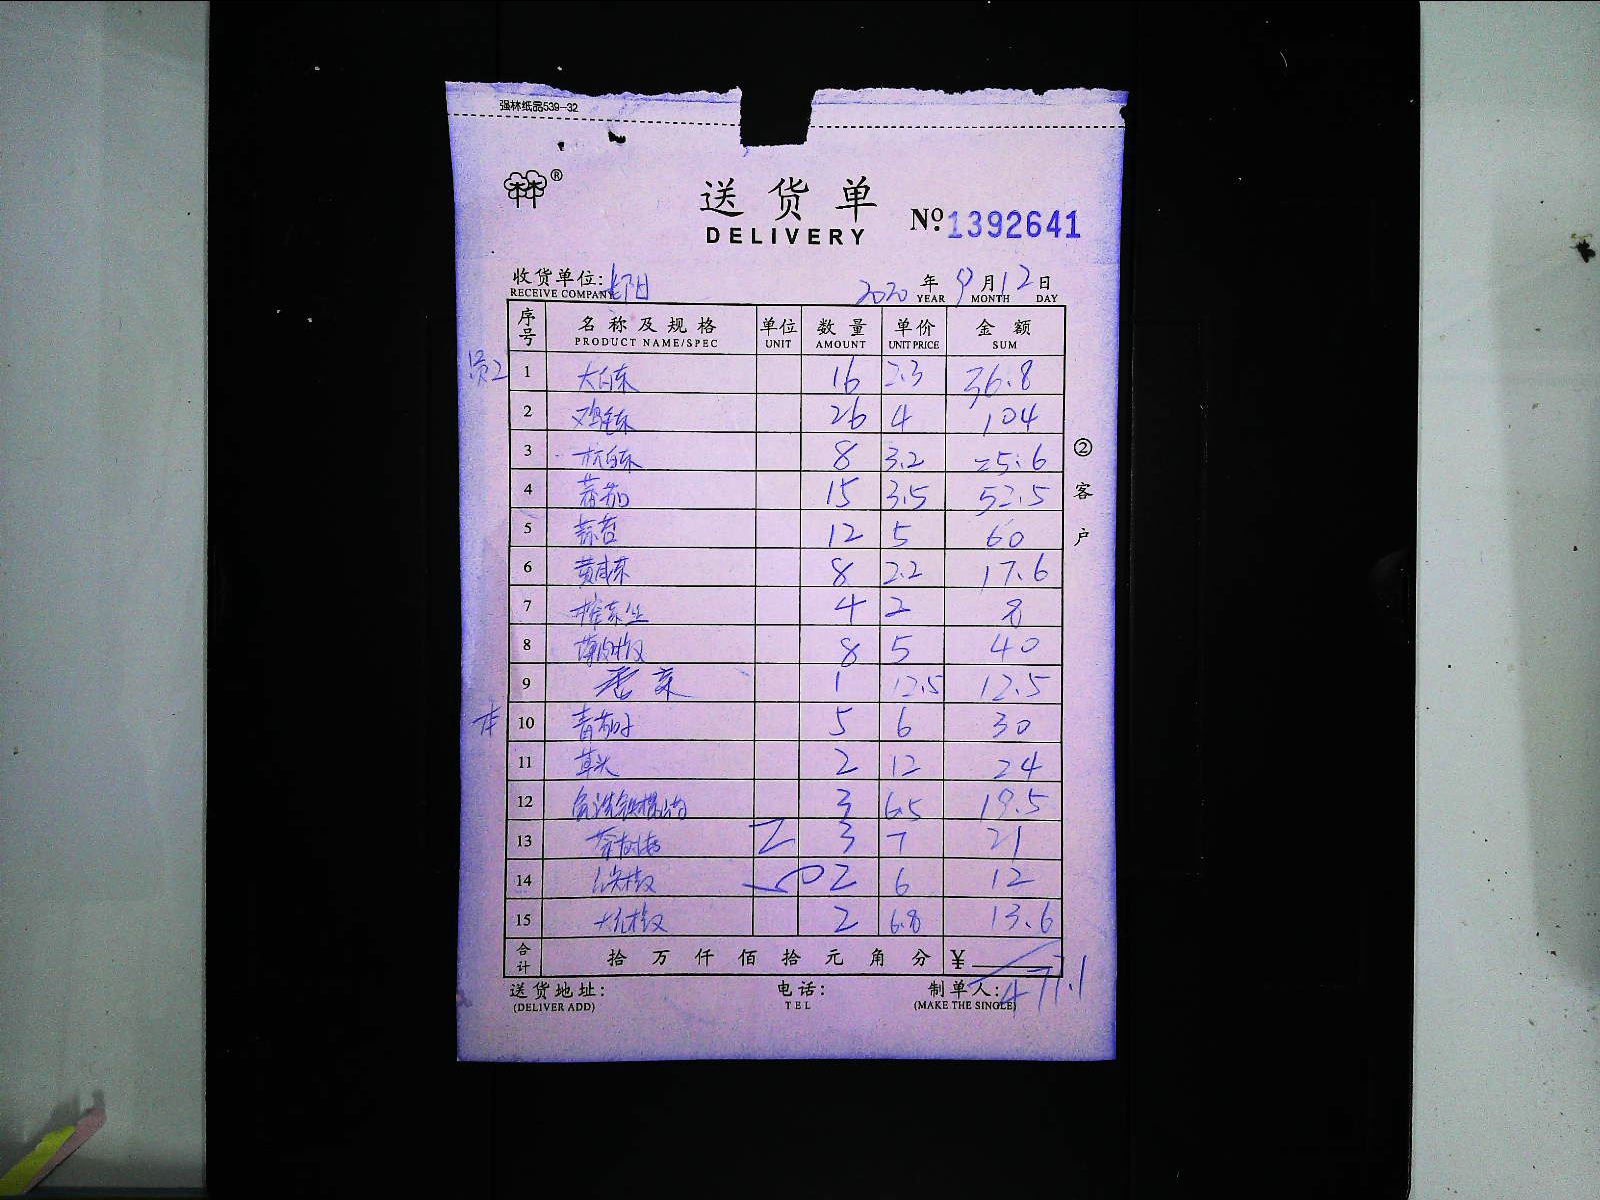 强林纸品539-32
林林®
送货单
DELIVERY
№:1392641
收货单位:长阳
RECEIVE COMPANY
2020年9月12日
YEAR MONTH DAY
序号 名称及规格 单位 数量 单价 金额
PRODUCT NAME/SPEC UNIT AMOUNT UNIT PRICE SUM
员工 1 大白菜 16 2.3 36.8
2 鸡毛菜 26 4 104
3 杭白菜 8 3.2 25.6
4 蕃茄 15 3.5 52.5
5 蒜苔 12 5 60
6 黄咸菜 8 2.2 17.6
7 榨菜丝 4 2 8
8 薄皮椒 8 5 40
9 香菜 1 12.5 12.5
10 青茄子 5 6 30
11 草头 2 12 24
12 山药 3 6.5 19.5
13 茶树菇 3 7 21
14 尖椒 2 6 12
15 2 6.8 13.6
合计 拾 万 仟 佰 拾 元 角 分 ¥ 477.1
送货地址: 电话: 制单人:
(DELIVER ADD) TEL (MAKE THE SINGLE)
②客户